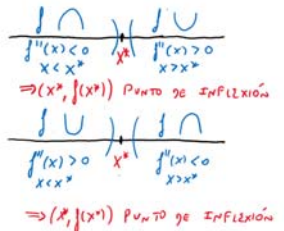 f ∩ )( f ∪
f''(x)<0 x* f''(x)>0
x<x* x>x*
⇒(x*, f(x*)) PUNTO DE INFLEXIÓN
f ∪ )( f ∩
f''(x)>0 x* f''(x)<0
x<x* x>x*
⇒(x*, f(x*)) PUNTO DE INFLEXIÓN